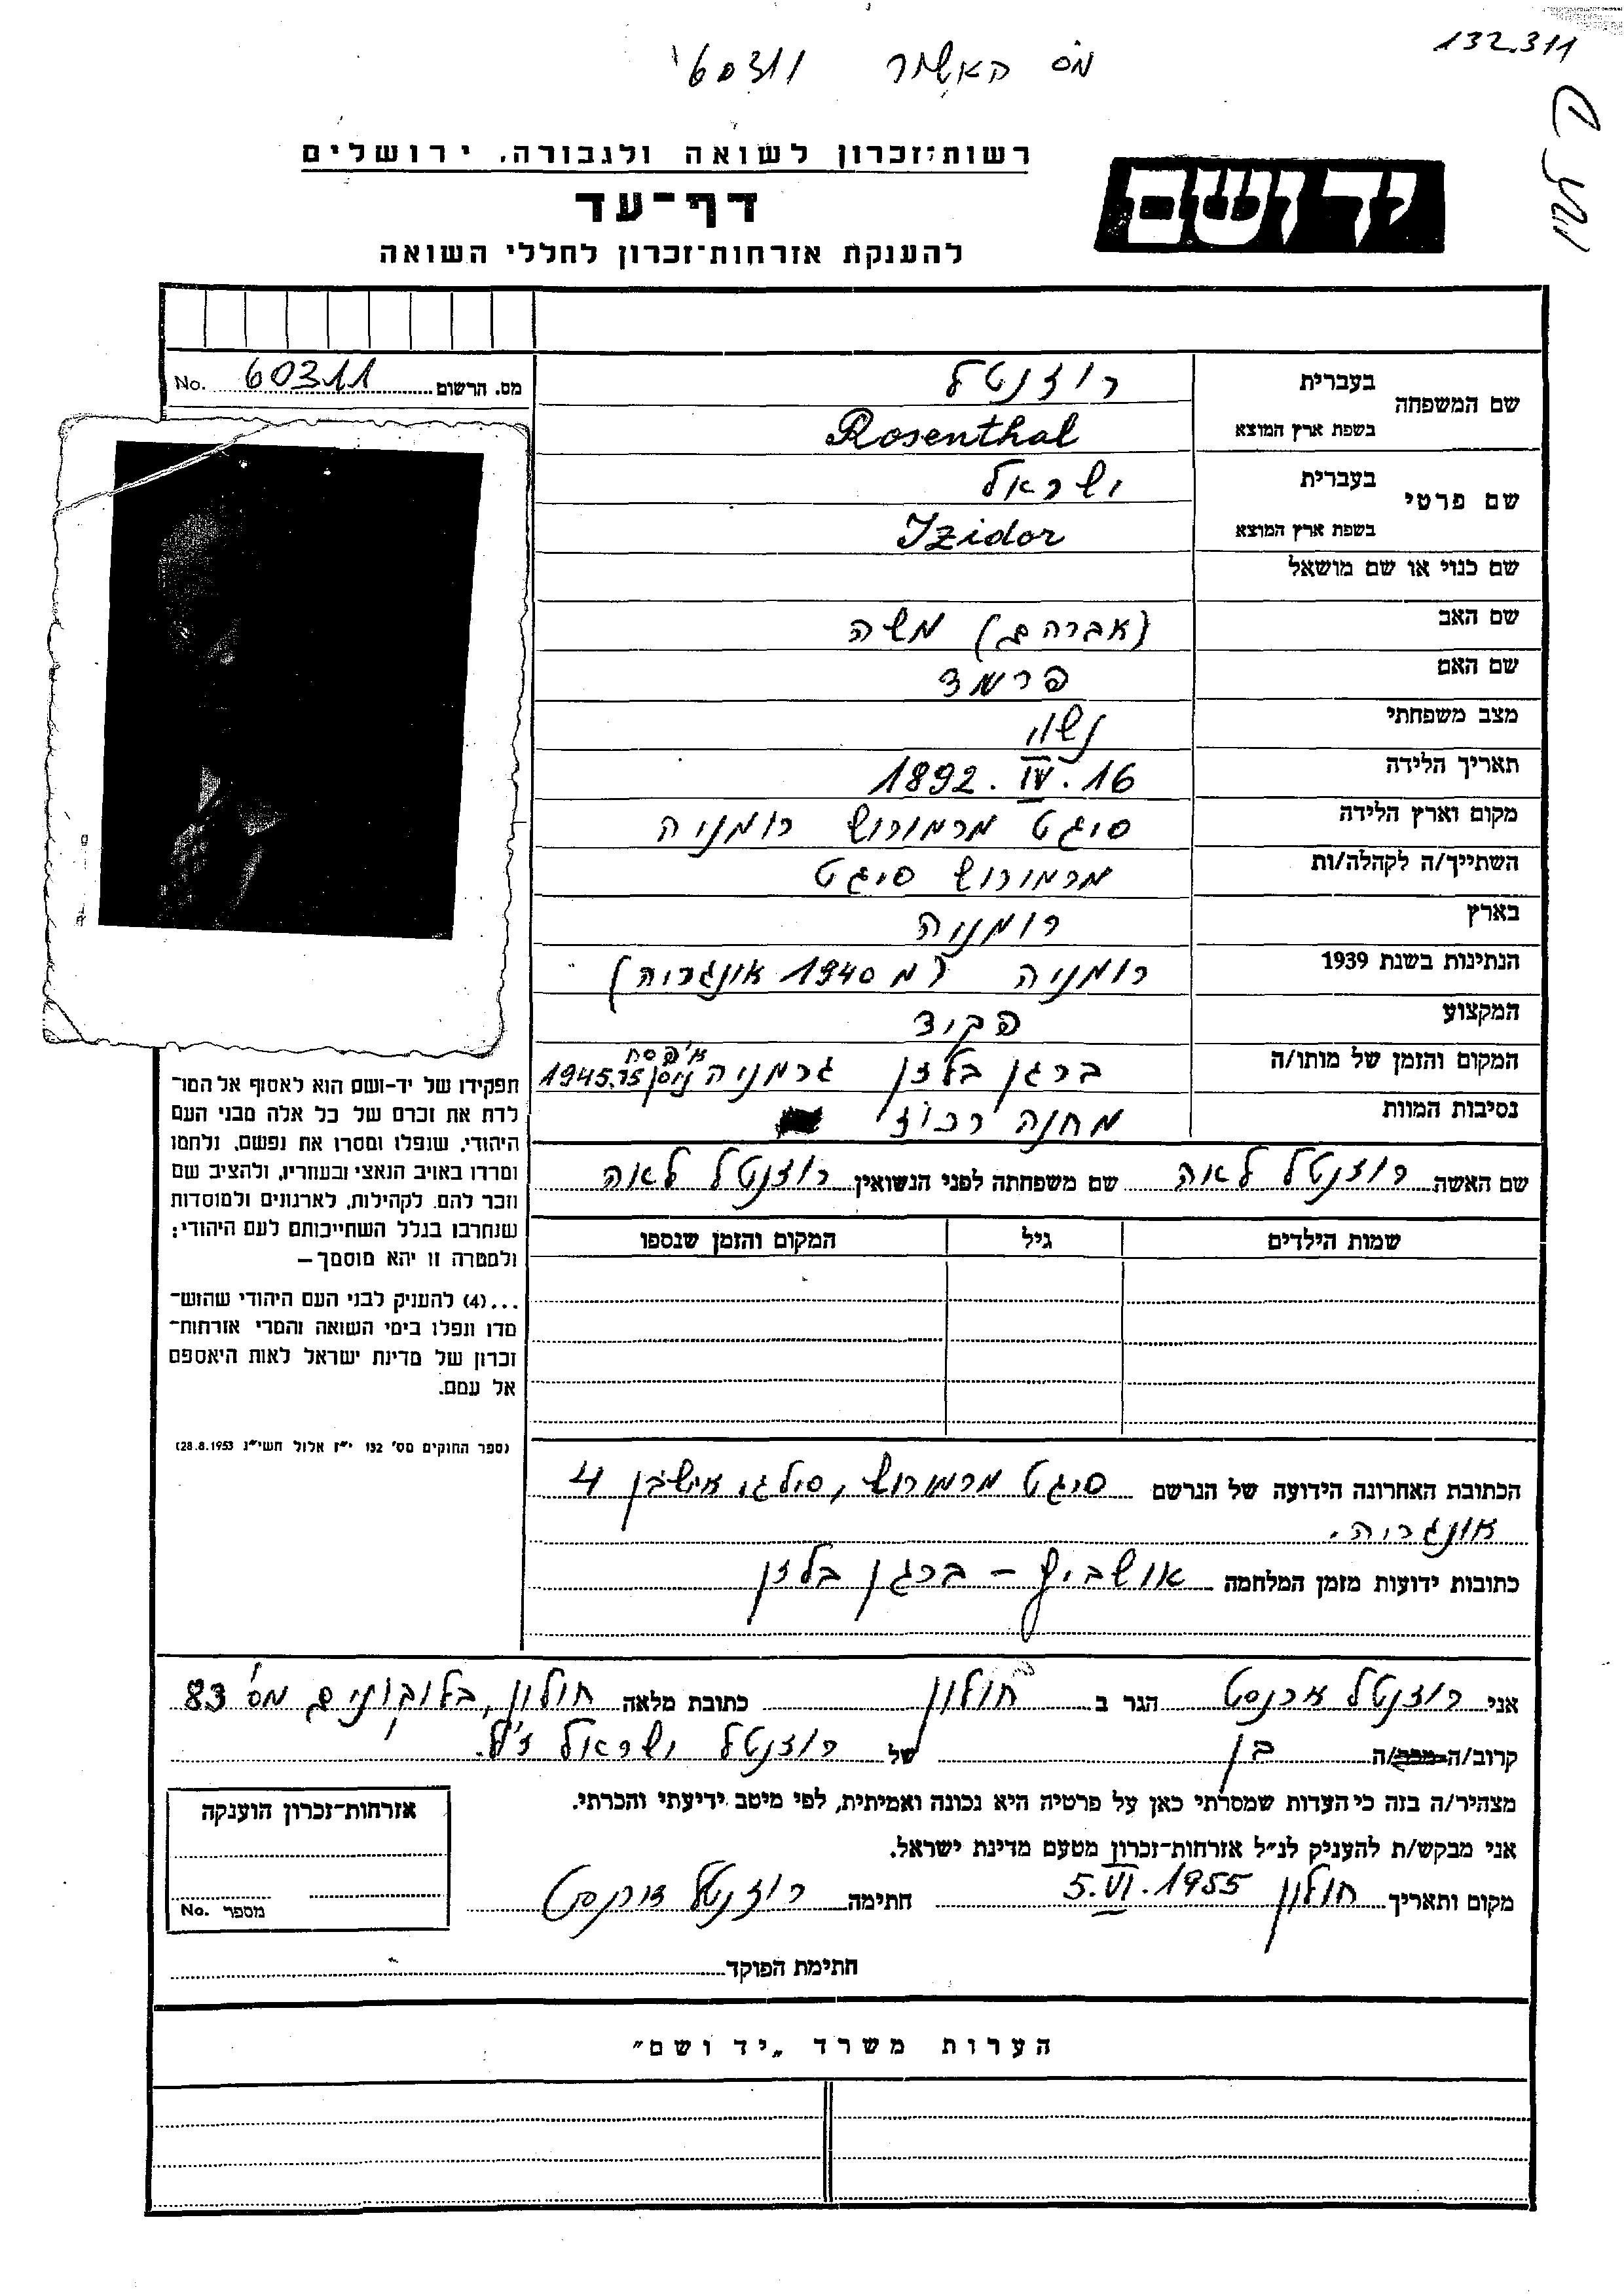 132.311
מס האשור 60311
רשות־זכרון לשואה ולגבורה, ירושלים
יד ושם
דף־עד
להענקת אזרחות־זכרון לחללי השואה
מס. הרשום 60311 No.
שם המשפחה בעברית רוזנטל
בשפת ארץ המוצא Rosenthal
שם פרטי בעברית ישראל
בשפת ארץ המוצא Izidor
שם כנוי או שם מושאל
שם האב (אברהם) משה
שם האם
מצב משפחתי נשוי
תאריך הלידה 16.IV.1892
מקום וארץ הלידה סיגט מרמורוש רומניה
השתייך/ה לקהלה/ות מרמורוש סיגט
בארץ רומניה
הנתינות בשנת 1939 רומניה (מ 1940 אונגריה)
המקצוע פקיד
המקום והזמן של מותו/ה ברגן בלזן גרמניה א' פסח ניסן 15.1945
נסיבות המוות מחנה רכוז
שם האשה רוזנטל לאה שם משפחתה לפני הנשואין רוזנטל לאה
שמות הילדים גיל המקום והזמן שנספו
תפקידו של יד-ושם הוא לאסוף אל המו־
לדת את זכרם של כל אלה מבני העם
היהודי, שנפלו ומסרו את נפשם, נלחמו
ומרדו באויב הנאצי ובעוזריו, ולהציב שם
וזכר להם, לקהילות, לארגונים ולמוסדות
שנחרבו בגלל השתייכותם לעם היהודי;
ולמטרה זו יהא מוסמך —
...(4) להעניק לבני העם היהודי שהוש־
מדו ונפלו בימי השואה והמרי אזרחות־
זכרון של מדינת ישראל לאות היאספם
אל עמם.
(ספר החוקים מס' 132 י"ז אלול תשי"ג 28.8.1953)
הכתובת האחרונה הידועה של הנרשם סיגט מרמורוש, 4
אונגריה.
כתובות ידועות מזמן המלחמה אושביץ – ברגן בלזן
אני רוזנטל ארנסט הגר ב חולון כתובת מלאה חולון, מס' 83
קרוב/ה בן של רוזנטל ישראל ז"ל.
מצהיר/ה בזה כי העדות שמסרתי כאן על פרטיה היא נכונה ואמיתית, לפי מיטב ידיעתי והכרתי.
אני מבקש/ת להעניק לנ"ל אזרחות־זכרון מטעם מדינת ישראל.
מקום ותאריך חולון 5.VI.1955 חתימה רוזנטל ארנסט
אזרחות־זכרון הוענקה
מספר No.
חתימת הפוקד
הערות משרד „יד ושם"